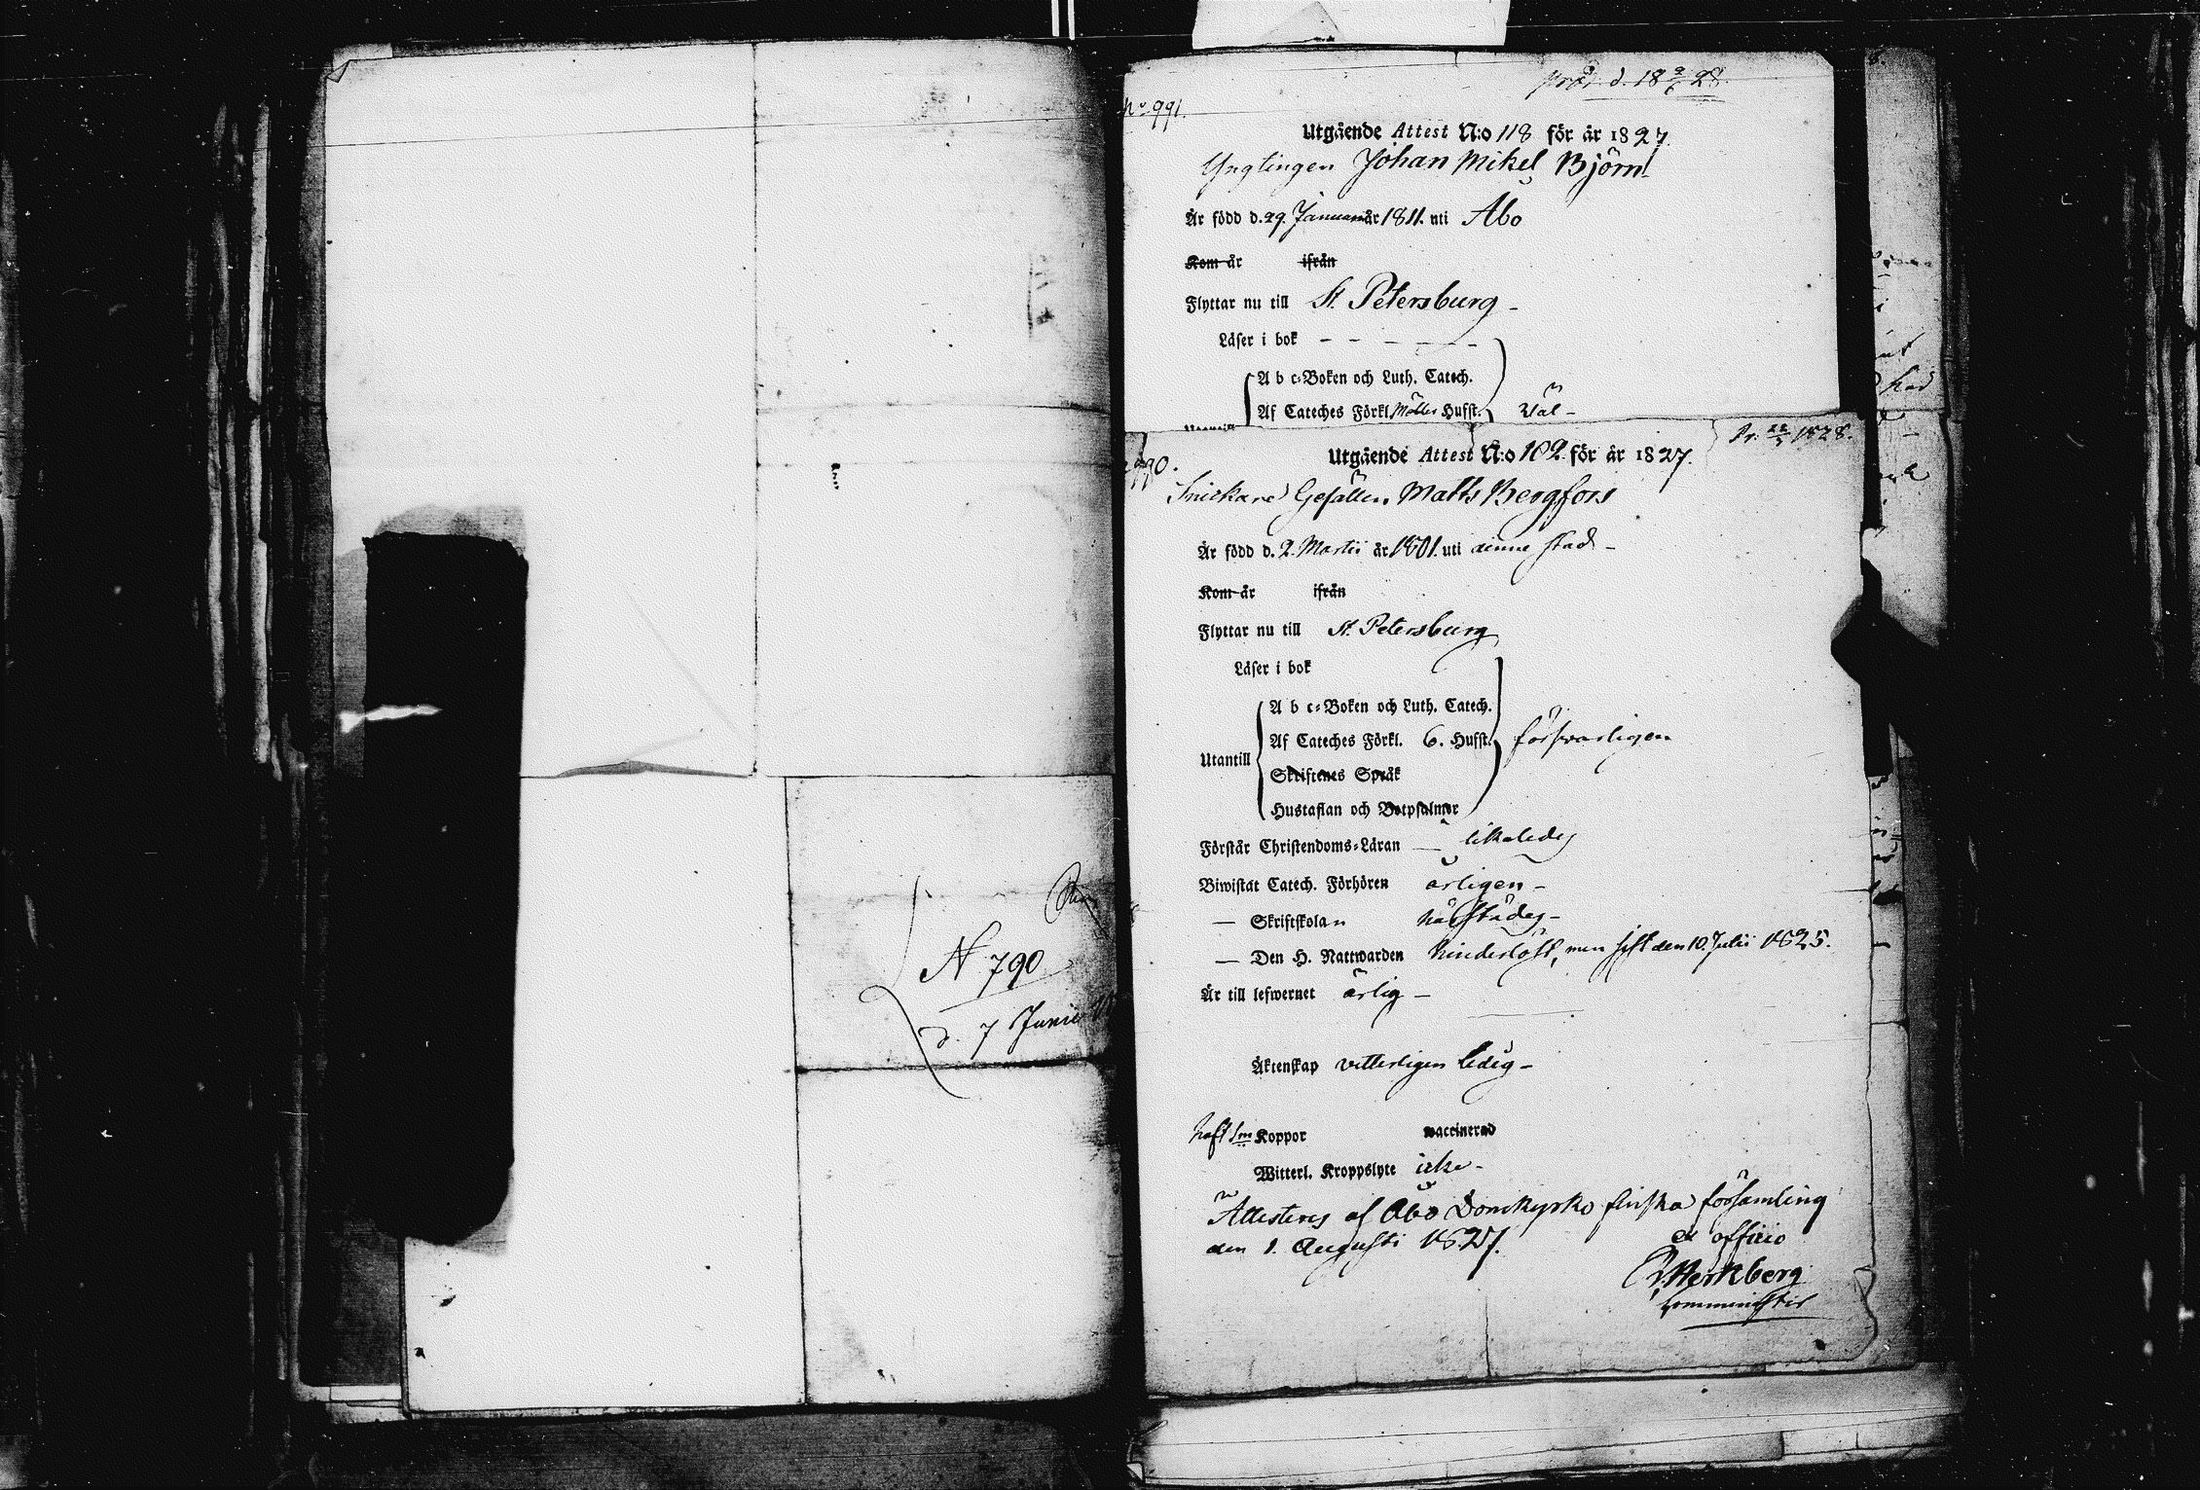 N 790
d. 7 Junii
No 991.
Utgående Attest N:o 118 för år 1827.
Ynglingen Johan Mikel Björn
Är född d. 29. Januari år 1811. uti Åbo
Kom år ifrån
Flyttar nu till St. Petersburg -
Läser i bok - - - - -
A b c-Boken och Luth. Catech.
Af Cateches Förkl. Hufst. Väl -
990.
Utgående Attest N:o 102 för år 1827.
Snickare Gesällen Matts Bergfors
Är född d. 2. Martii år 1801. uti denne stad -
Kom år ifrån
Flyttar nu till St. Petersburg
Läser i bok
A b c-Boken och Luth. Catech.
Af Cateches Förkl. 6. Hufst. försvarligen
Utantill
Skriftenes Språk
Hustaflan och Botpsalmer
Förstår Christendoms-Läran — likaledes
Biwistat Catech. Förhören årligen -
— Skriftskolan härstädes -
— Den H. Nattwarden hinderlöst, men sist den 10. Julii 1825.
Är till lefwernet ärlig -
Äktenskap vetterligen ledig -
haft Sm Koppor vaccinerad
Witterl. Kroppslyte icke -
Attesteres af Åbo Domkyrko finska församling
den 1. Augusti 1827. ex officio